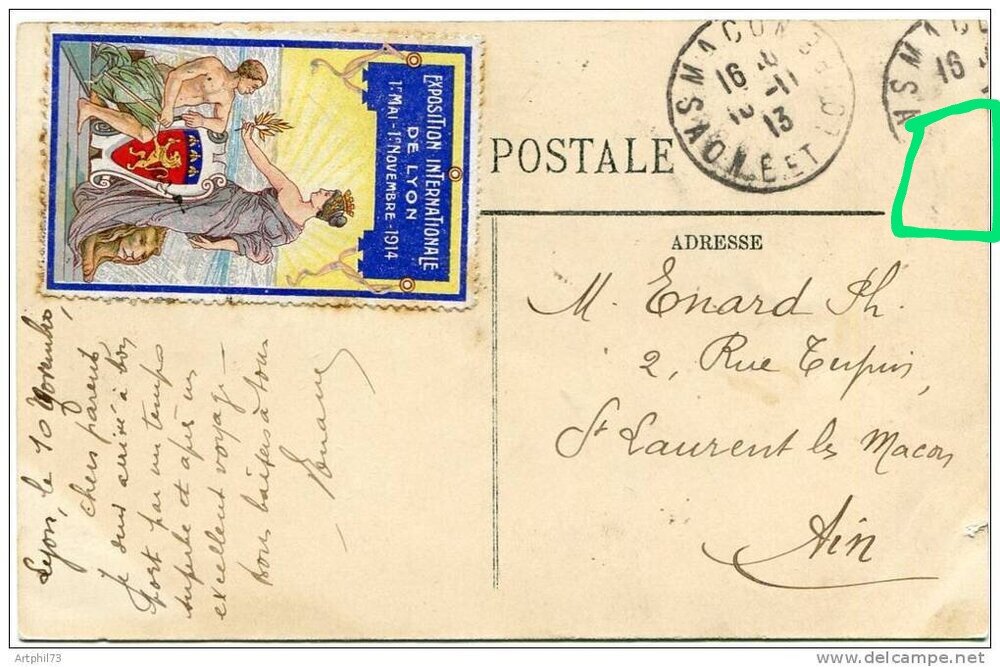 EXPOSITION INTERNATIONALE
DE LYON
1ER MAI - 1ER NOVEMBRE - 1914
POSTALE
MACON
16
10 - 11
13
SAONE ET
MAC
16
SA
ADRESSE
M. Enard Ph.
2, Rue Tupin,
St Laurent les Macon
Ain
Lyon, le 10 Novembre,
chers parents
Je suis arrivé à bon
port par un temps
superbe et après un
excellent voyage -
bons baisers à tous
Artphil73
www.delcampe.net